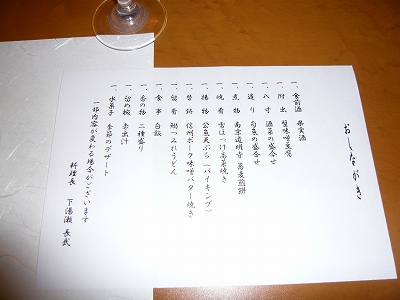 おしながき
一、食前酒 果実酒
一、附出 蟹味噌豆腐
一、八寸 酒菜の盛合せ
一、造り 旬魚の盛合せ
一、煮物 南京道明寺 蕎麦煎餅
一、焼肴 舌はっけ高菜焼き
一、揚物 公魚天ぷら(バイキング)
一、替鉢 信州ポーク味噌バター焼き
一、留肴 鴨つみれうどん
一、食事 白飯
一、香の物 二種盛り
一、留め椀 赤出汁
一、水菓子 季節のデザート
一部内容が変わる場合がございます
料理長 下湯瀬 長武